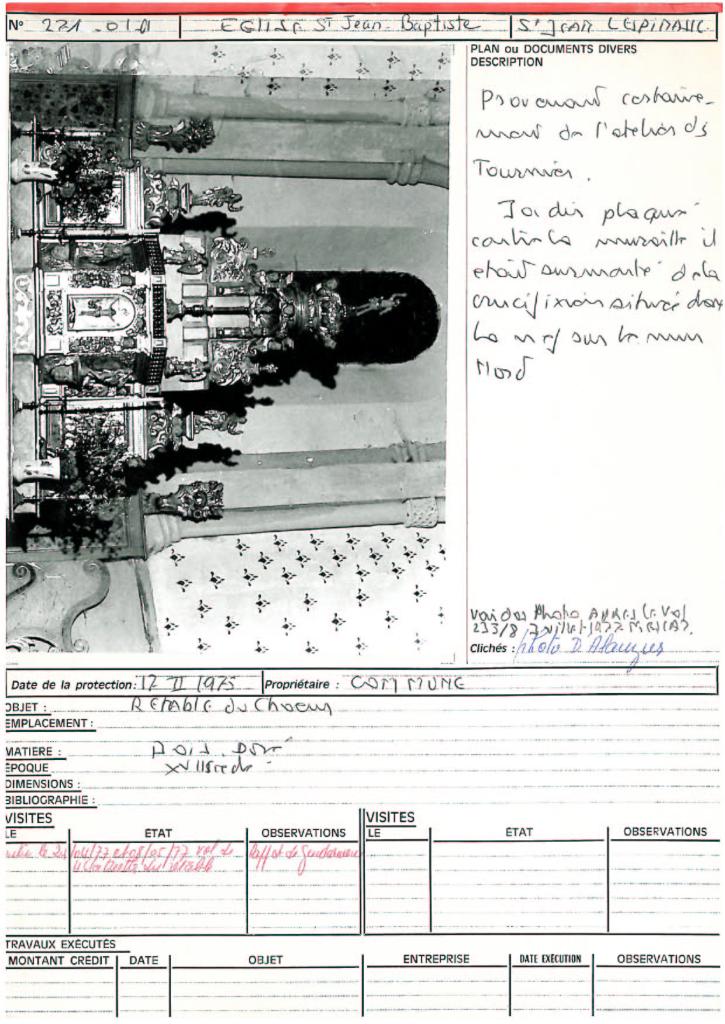 N° 271-01
EGLISE St Jean-Baptiste
St JEAN LESPINASSE
PLAN ou DOCUMENTS DIVERS
DESCRIPTION
Provenant certaine-
ment de l'atelier des
Tournier.
Jadis plaqué
contre la muraille il
était surmonté de la
crucifixion située dans
la nef sur le mur
Nord
Voir des Photo APRES le Vol
233/8 Juillet 1977
Clichés : photo D.
Date de la protection : 12 II 1975
Propriétaire : COMMUNE
OBJET : RETABLE du Choeur
EMPLACEMENT :
MATIERE : BOIS DORÉ
EPOQUE
DIMENSIONS :
BIBLIOGRAPHIE :
VISITES
LE ÉTAT OBSERVATIONS
le 24/04/77 et 08/05/77 vol de
statuettes du retable
Rapport de Gendarmerie
VISITES
LE ÉTAT OBSERVATIONS
TRAVAUX EXÉCUTÉS
MONTANT CRÉDIT DATE OBJET ENTREPRISE DATE EXÉCUTION OBSERVATIONS